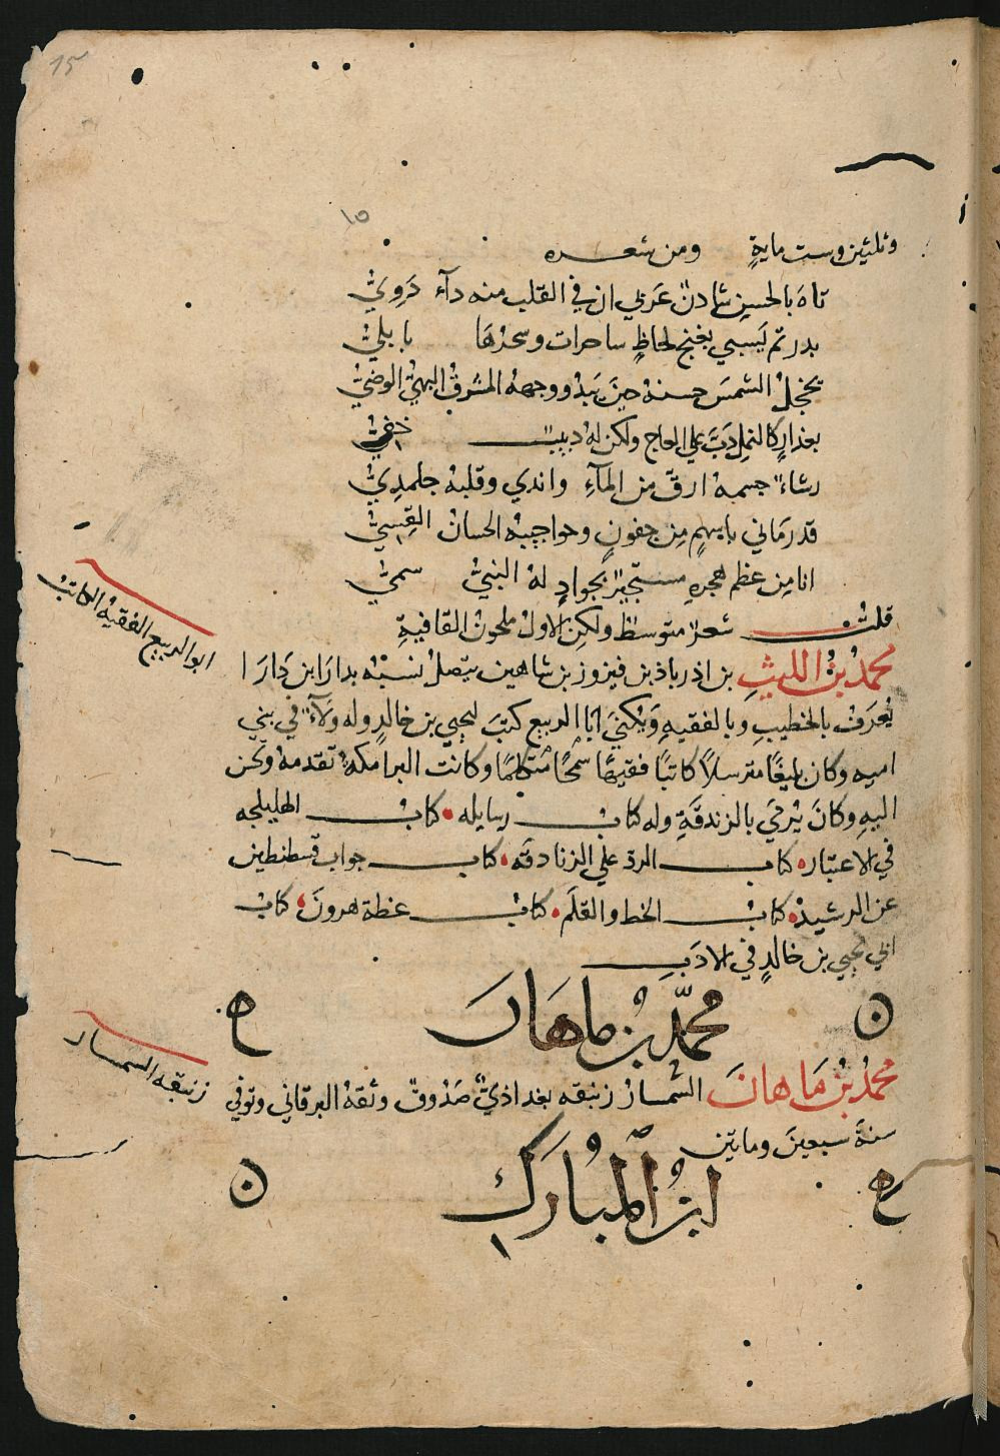 15
١٥
وثلثين وست ماية ومن شعره
تاه بالحسن شادن عربي ان في القلب منه دآء دَوِيّ
بدر تم يسبي بغنج لحاظٍ ساحرات وسحرُهَا بابليّ
يخجل الشمسَ حسنهُ حينَ يَبدُو ووجههُ المشرقُ البهيّ الوضيّ
بعذارٍ كالنمل دَبَّ علي العاج ولكن لهُ دبيبٌ خفيّ
رشاءٌ جسمهُ ارقّ من المآءِ واندي وقلبهُ جلمدِيّ
قد رَماني باسهمٍ مِن جفونٍ وحواجيبهُ الحسانُ القِسِيّ
انا مِن عظم هجرهِ مستجيرٌ بجوادٍ لهُ النبيّ سميّ
قلتُ شعرٌ متوسطٌ ولكن الاول ملحونُ القافيةِ
محمدُ بنُ الليثِ بن اذرباذ بن فيروز بن شاهين يتصلُ نسبُه بدارَا ابن دَارَا
يُعرَفُ بالخطيبِ وبالفقيهِ وَيُكنيَ ابَا الربيع كتبَ ليحيي بن خالدٍ وله ولآءٌ في بني
اميه وكان بليغًا مترسلاً كاتبًا فقيهًا سَمحًا متكلمًا وكانت البرامكهُ تقدمهُ وتحسن
اليهِ وكانَ يُرميَ بالزندقَةِ وله كتابُ رسايله كتابُ الهليلجه
في الاعتبار كتاب الردّ علي الزنادقَه كتاب جواب قسطنطين
عن الرشيد كتابُ الخط والقلَم كتابُ عظة هرونَ كتابُ
الي يحيي بن خالدٍ في الادَبِ
ابو الربيع الفقيهُ الكاتبُ
ن محمّد بن ماهَان ح
محمدُ بن مَاهانَ السّمسارُ زنبقه بغداذيٌّ صَدُوقٌ وثقهُ البرقاني وتوفي
سنةَ سبعينَ ومايتين
زنبقه السمسار
ح ابنُ المُبارَك ن